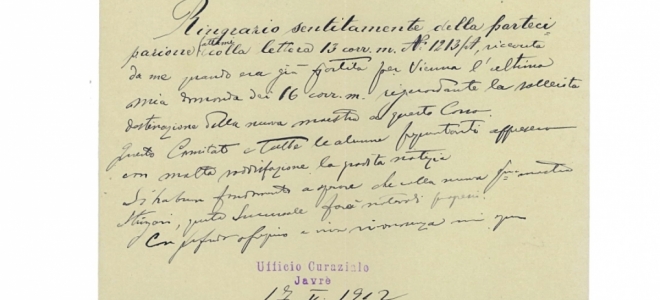 Ringrazio sentitamente della parteci
pazione fattami colla lettera 13 corr. m. N° 1213/A, ricevuta
da me quando era già partita per Vienna l'ultima
mia domanda dei 16 corr. m. riguardante la sollecita
destinazione della nuova maestra a questo Corso.
Questo Comitato e tutte le alunne appresero
con molta soddisfazione la gradita notizia
Si ha buon fondamento a sperare che colla nuova maestra
questa Succursale farà
Con profondo ossequio e viva riconoscenza mi
Ufficio Curaziale
Javrè
17 1912